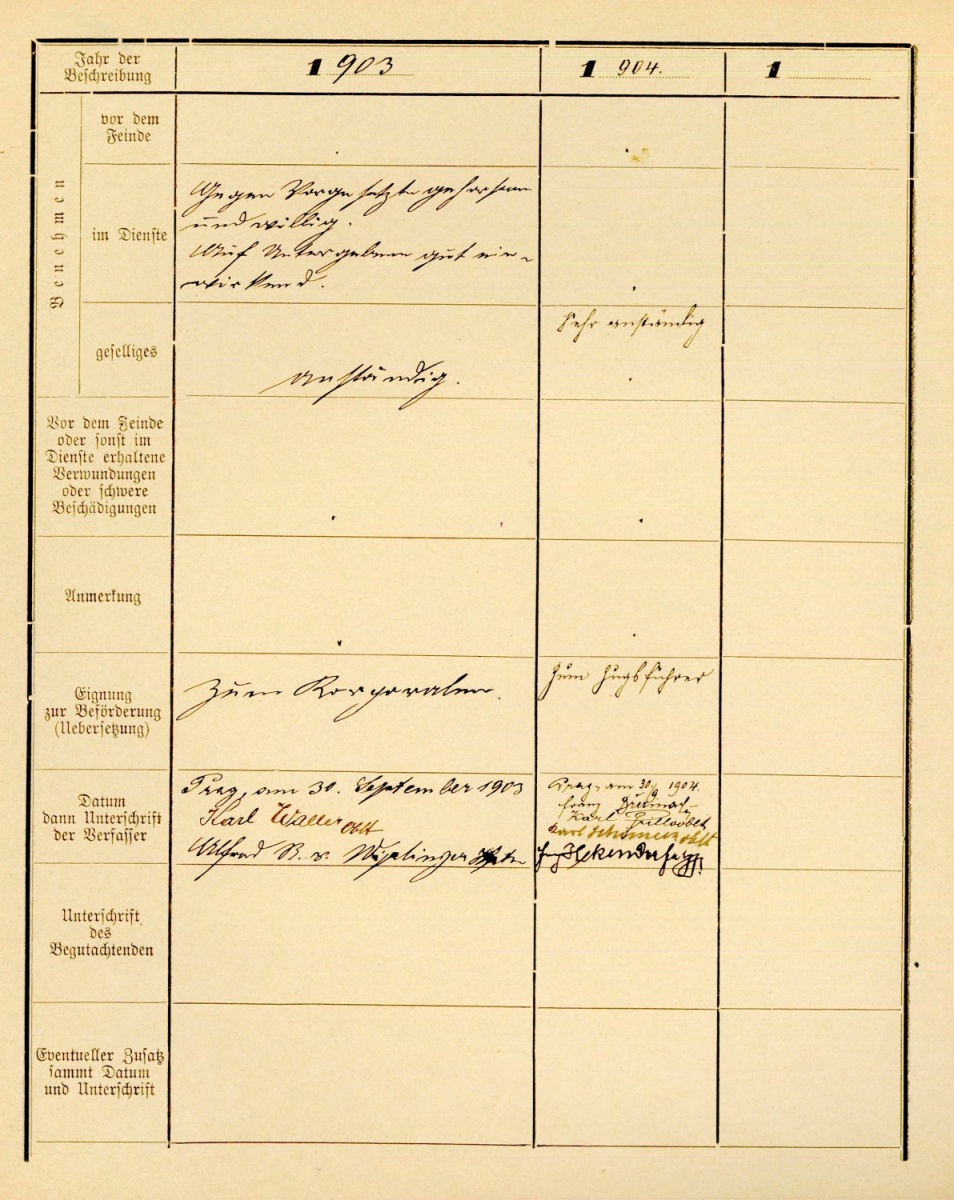 Jahr der
Beschreibung
1903
1904.
1
Benehmen
vor dem
Feinde
im Dienste
Gegen Vorgesetzte gehorsam
und willig.
Auf Untergebene gut ein-
wirkend.
geselliges
anständig.
Sehr anständig
Vor dem Feinde
oder sonst im
Dienste erhaltene
Verwundungen
oder schwere
Beschädigungen
Anmerkung
Eignung
zur Beförderung
(Uebersetzung)
Zum Korporalen.
Zum Zugsführer
Datum
dann Unterschrift
der Verfasser
Prag, am 30. September 1903
Karl Waller Oblt
Alfred R. v. Wiplinger
Prag, am 30/9 1904.
Franz
Karl
Karl Oblt
Unterschrift
des
Begutachtenden
Eventueller Zusatz
sammt Datum
und Unterschrift